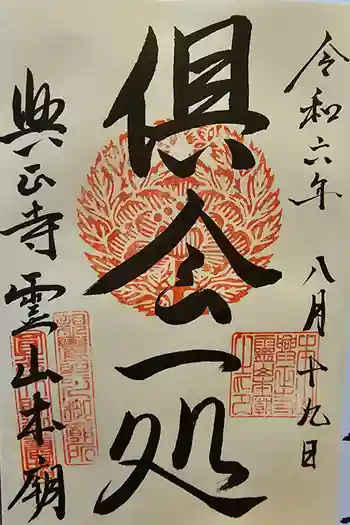 令和六年 八月十九日
倶会一処
興正寺霊山本廟